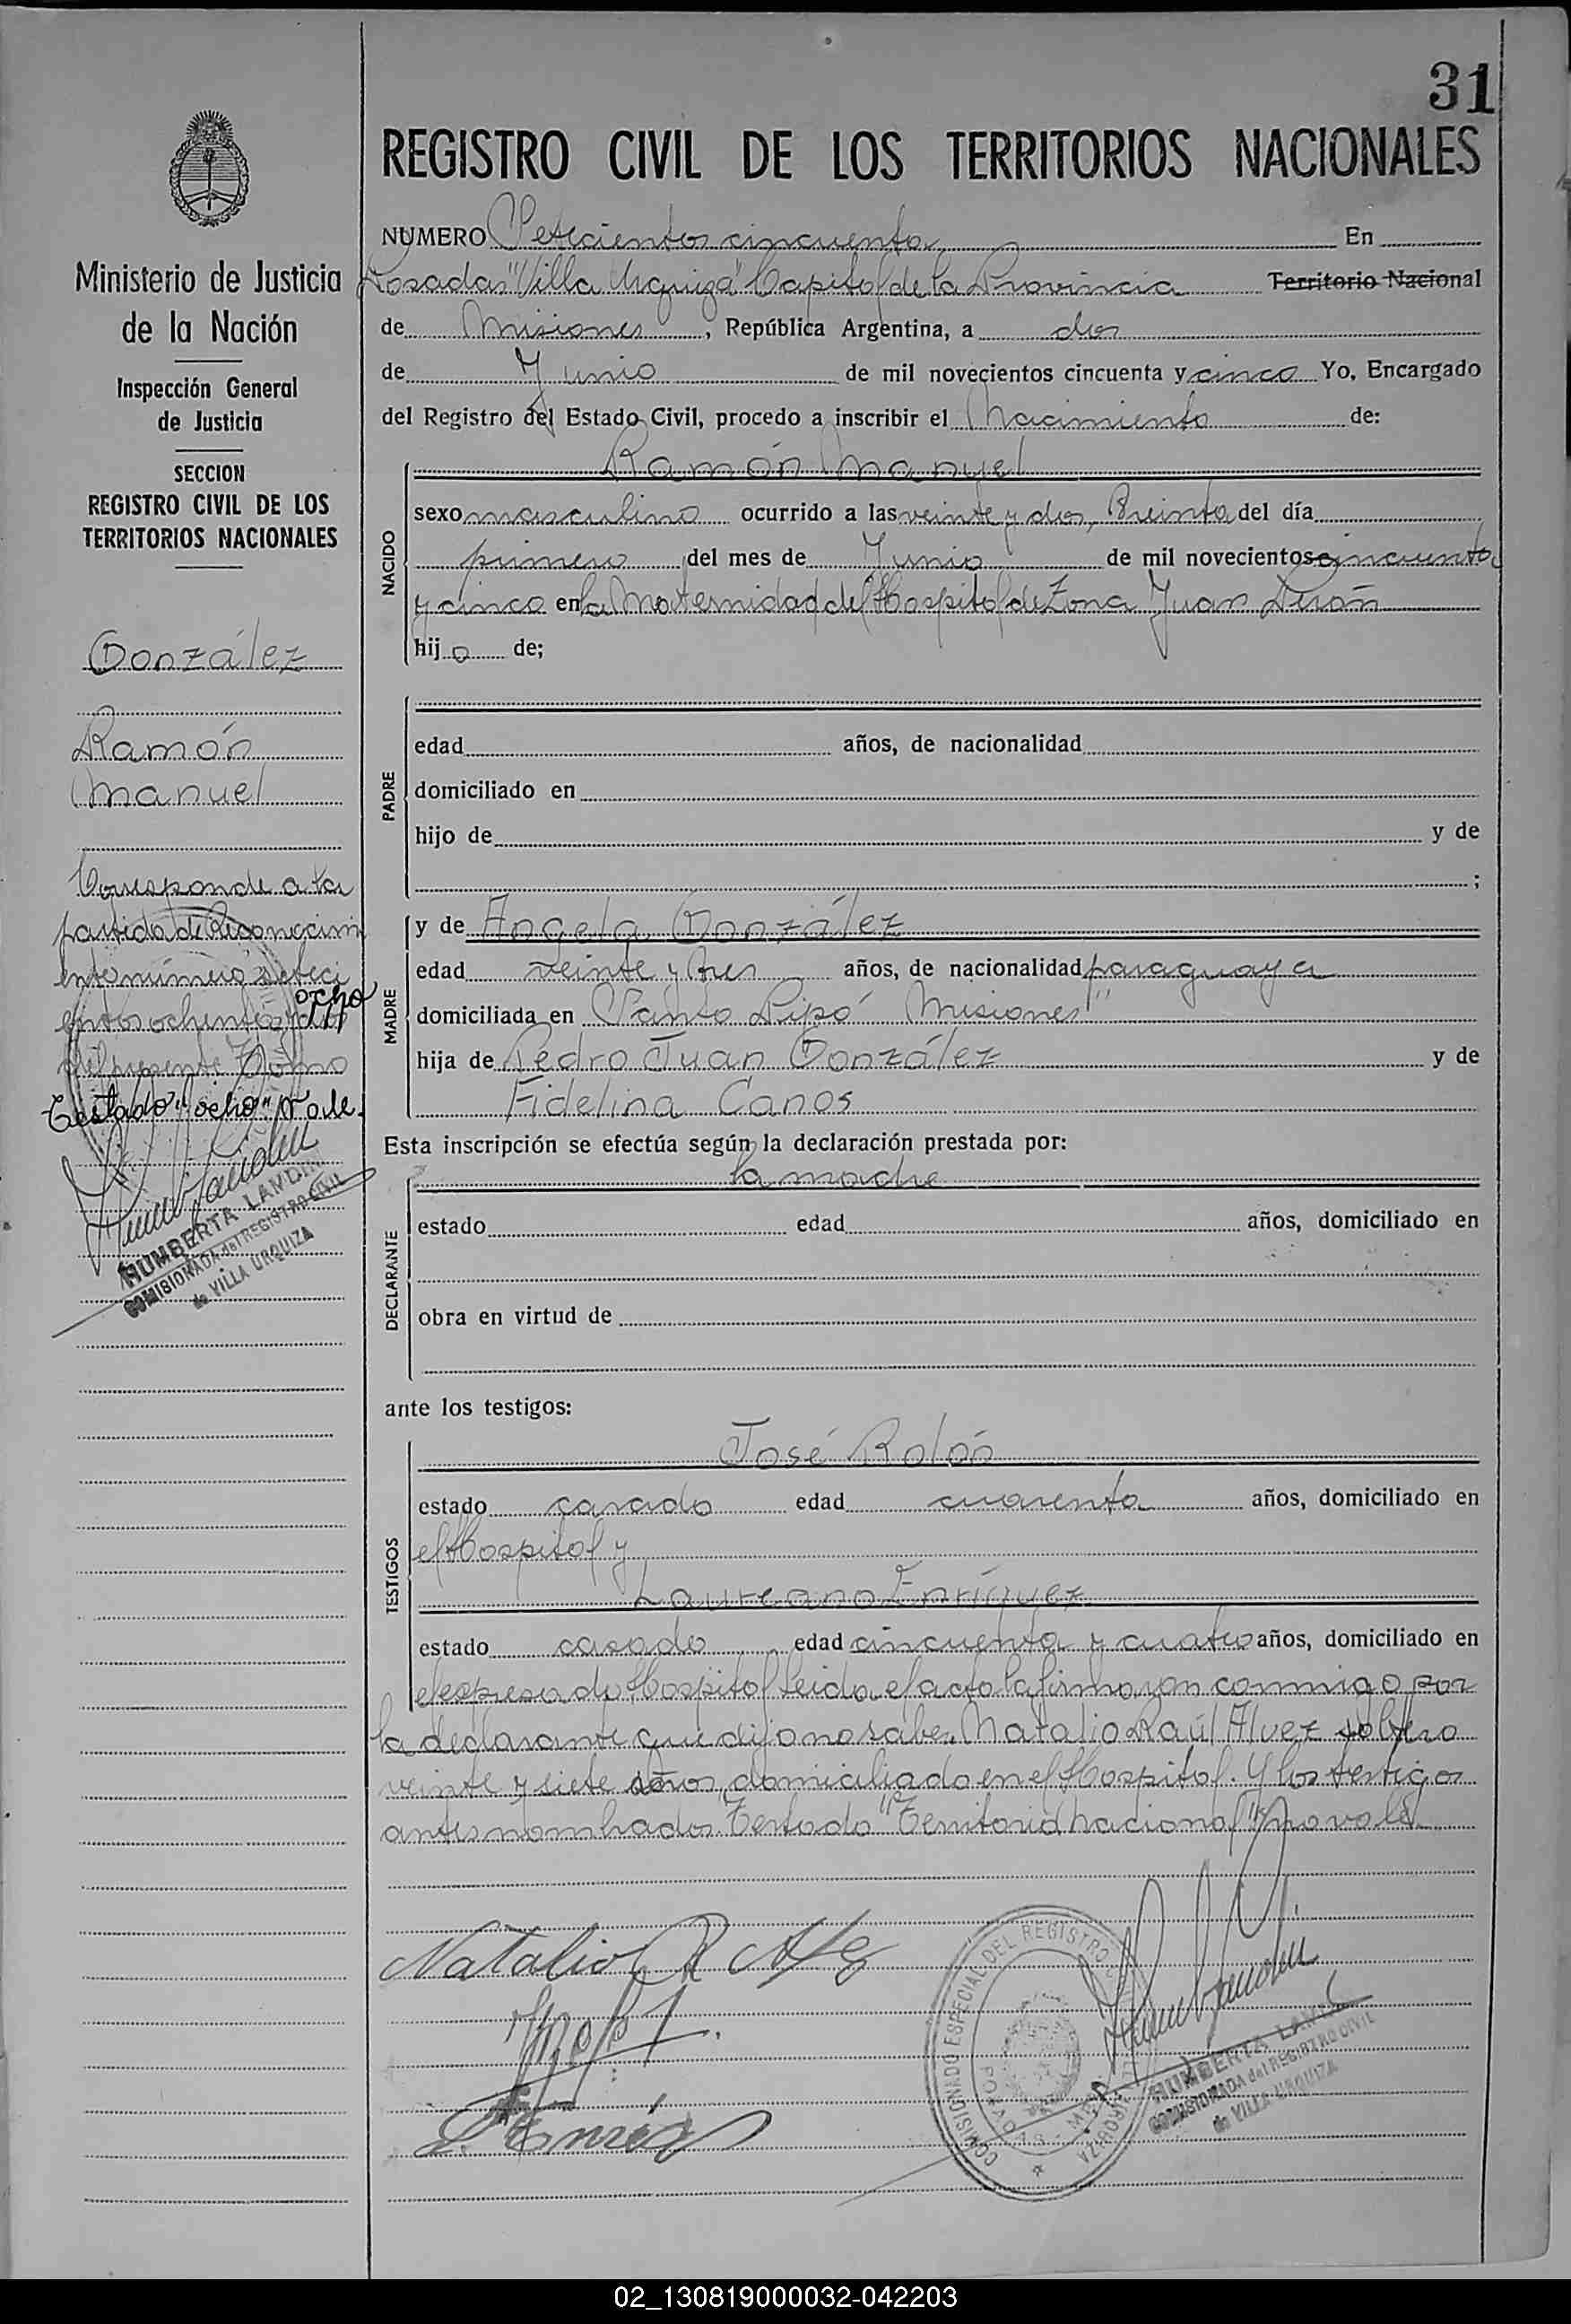 31
REGISTRO CIVIL DE LOS TERRITORIOS NACIONALES
Ministerio de Justicia
de la Nación
Inspección General
de Justicia
SECCION
REGISTRO CIVIL DE LOS
TERRITORIOS NACIONALES
González
Ramón
Manuel
Corresponde a la
partida de Reconocimi
ento número seteci
entos ochenta y
ocho
del presente Tomo
Testado "ocho" No vale.
HUMBERTA LANDI
COMISIONADA del REGISTRO CIVIL
de VILLA URQUIZA
NUMERO Setecientos cincuenta En
Posadas "Villa Urquiza" Capital de la Provincia Territorio Nacional
de Misiones, República Argentina, a dos
de Junio de mil novecientos cincuenta y cinco Yo, Encargado
del Registro del Estado Civil, procedo a inscribir el Nacimiento de:
NACIDO
Ramón Manuel
sexo masculino ocurrido a las veinte y dos, treinta del día
primero del mes de Junio de mil novecientos cincuenta
y cinco en la Maternidad del Hospital de Zona Juan Perón
hijo de;
PADRE
edad años, de nacionalidad
domiciliado en
hijo de y de
;
MADRE
y de Angela González
edad veinte y tres años, de nacionalidad paraguaya
domiciliada en Santo Pipó "Misiones"
hija de Pedro Juan González y de
Fidelina Canos
Esta inscripción se efectúa según la declaración prestada por:
DECLARANTE
la madre
estado edad años, domiciliado en
obra en virtud de
ante los testigos:
TESTIGOS
José Rolón
estado casado edad cuarenta años, domiciliado en
el Hospital y
Laureano Enríquez
estado casado edad cincuenta y cuatro años, domiciliado en
el expresado Hospital leida el acta la firmaron conmigo por
la declarante que dijo no saber, Natalio Raúl Alvez soltero
veinte y siete años, domiciliado en el Hospital. Y los testigos
antes nombrados. Testado "Territorio Nacional" no vale.
Natalio R
COMISIONADO ESPECIAL DEL REGISTRO CIVIL
VILLA URQUIZA
HUMBERTA LANDI
COMISIONADA del REGISTRO CIVIL
de VILLA URQUIZA
02_130819000032-042203